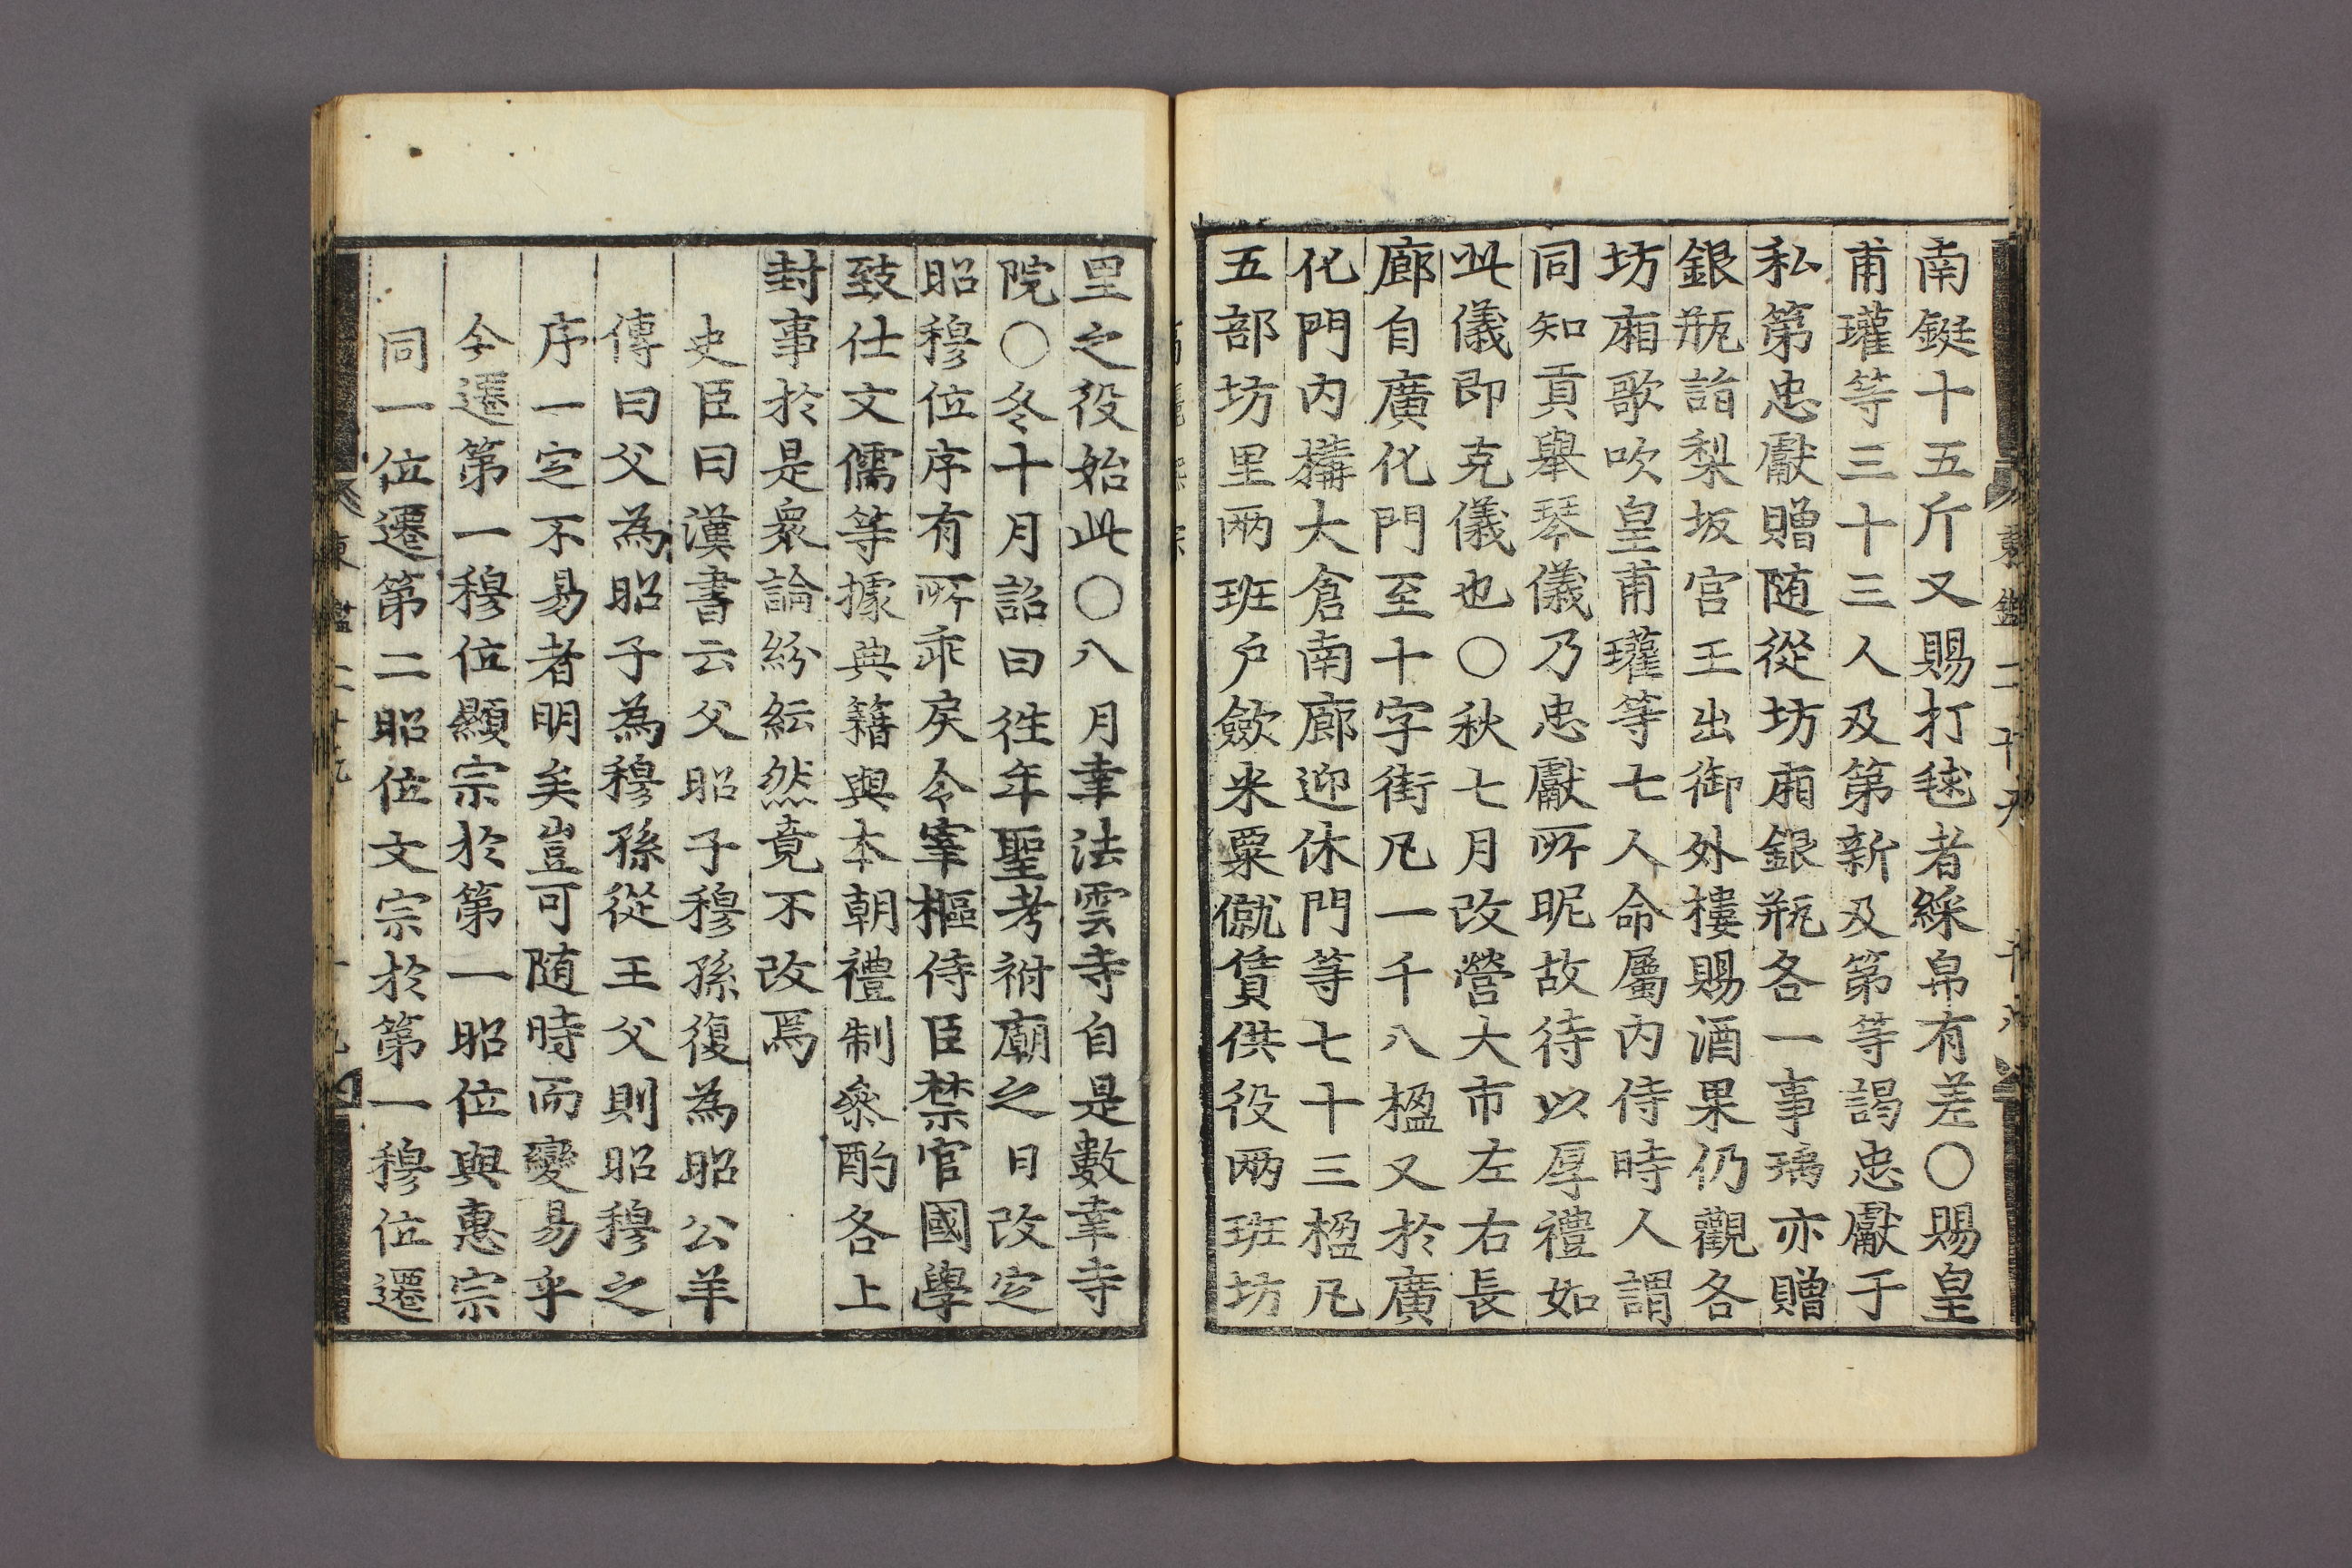 南鋌十五斤又賜打毬者綵帛有差○賜皇
甫瓘等三十三人及第新及第等謁忠獻于
私第忠獻贈随從坊廂銀瓶各一事瑀亦贈
銀瓶詣梨坂宮王出御外樓賜酒果仍觀各
坊廂歌吹皇甫瓘等七人命屬內侍時人謂
同知貢舉琴儀乃忠獻所昵故待以厚禮如
此儀即克儀也○秋七月改營大市左右長
廊自廣化門至十字街凡一千八楹又於廣
化門內搆大倉南廊迎休門等七十三楹凡
五部坊里兩班戶歛米粟僦賃供役兩班坊
里之役始此○八月幸法雲寺自是數幸寺
院○冬十月詔曰徃年聖考祔廟之日改定
昭穆位序有所乖戾令宰樞侍臣禁官國學
致仕文儒等據典籍與本朝禮制叅酌各上
封事於是衆論紛紜然竟不改焉
史臣曰漢書云父昭子穆孫復為昭公羊
傳曰父為昭子為穆孫從王父則昭穆之
序一定不易者明矣豈可随時而變易乎
今遷第一穆位顯宗於第一昭位與惠宗
同一位遷第二昭位文宗於第一穆位遷